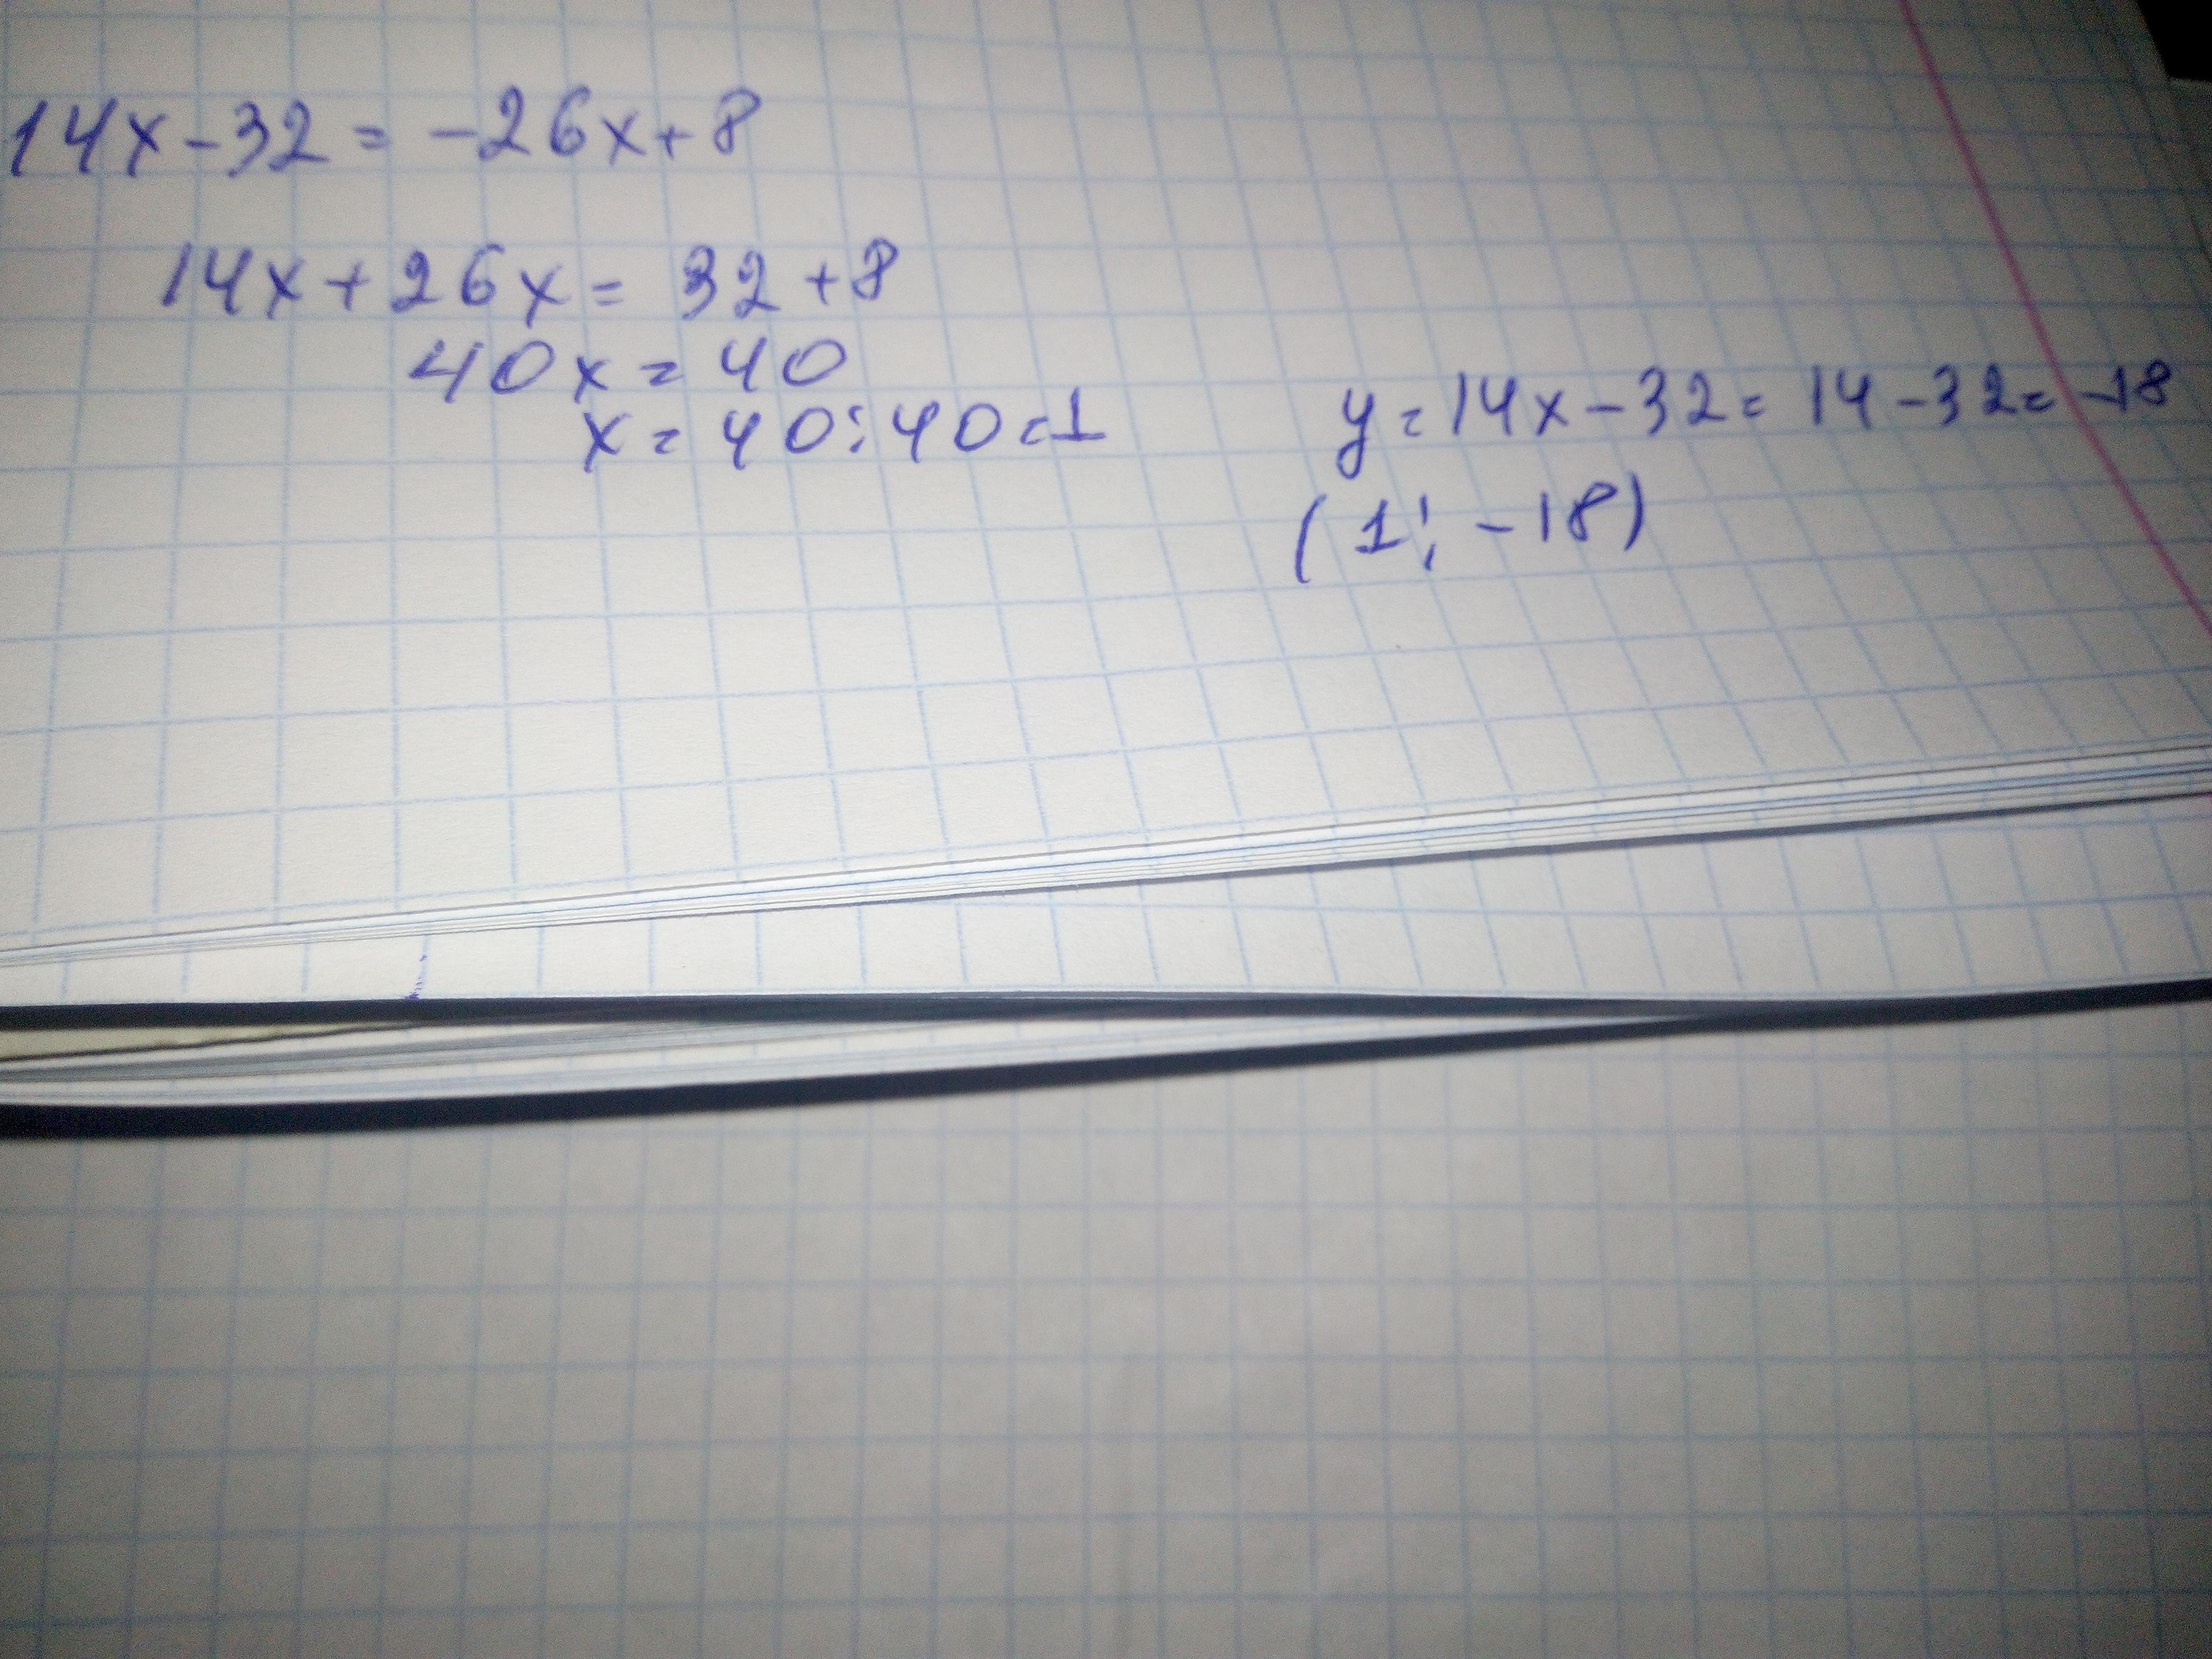 14x-32 = -26x+8
14x+26x = 32+8
40x = 40
x = 40:40=1
y=14x-32=14-32=-18
(1; -18)